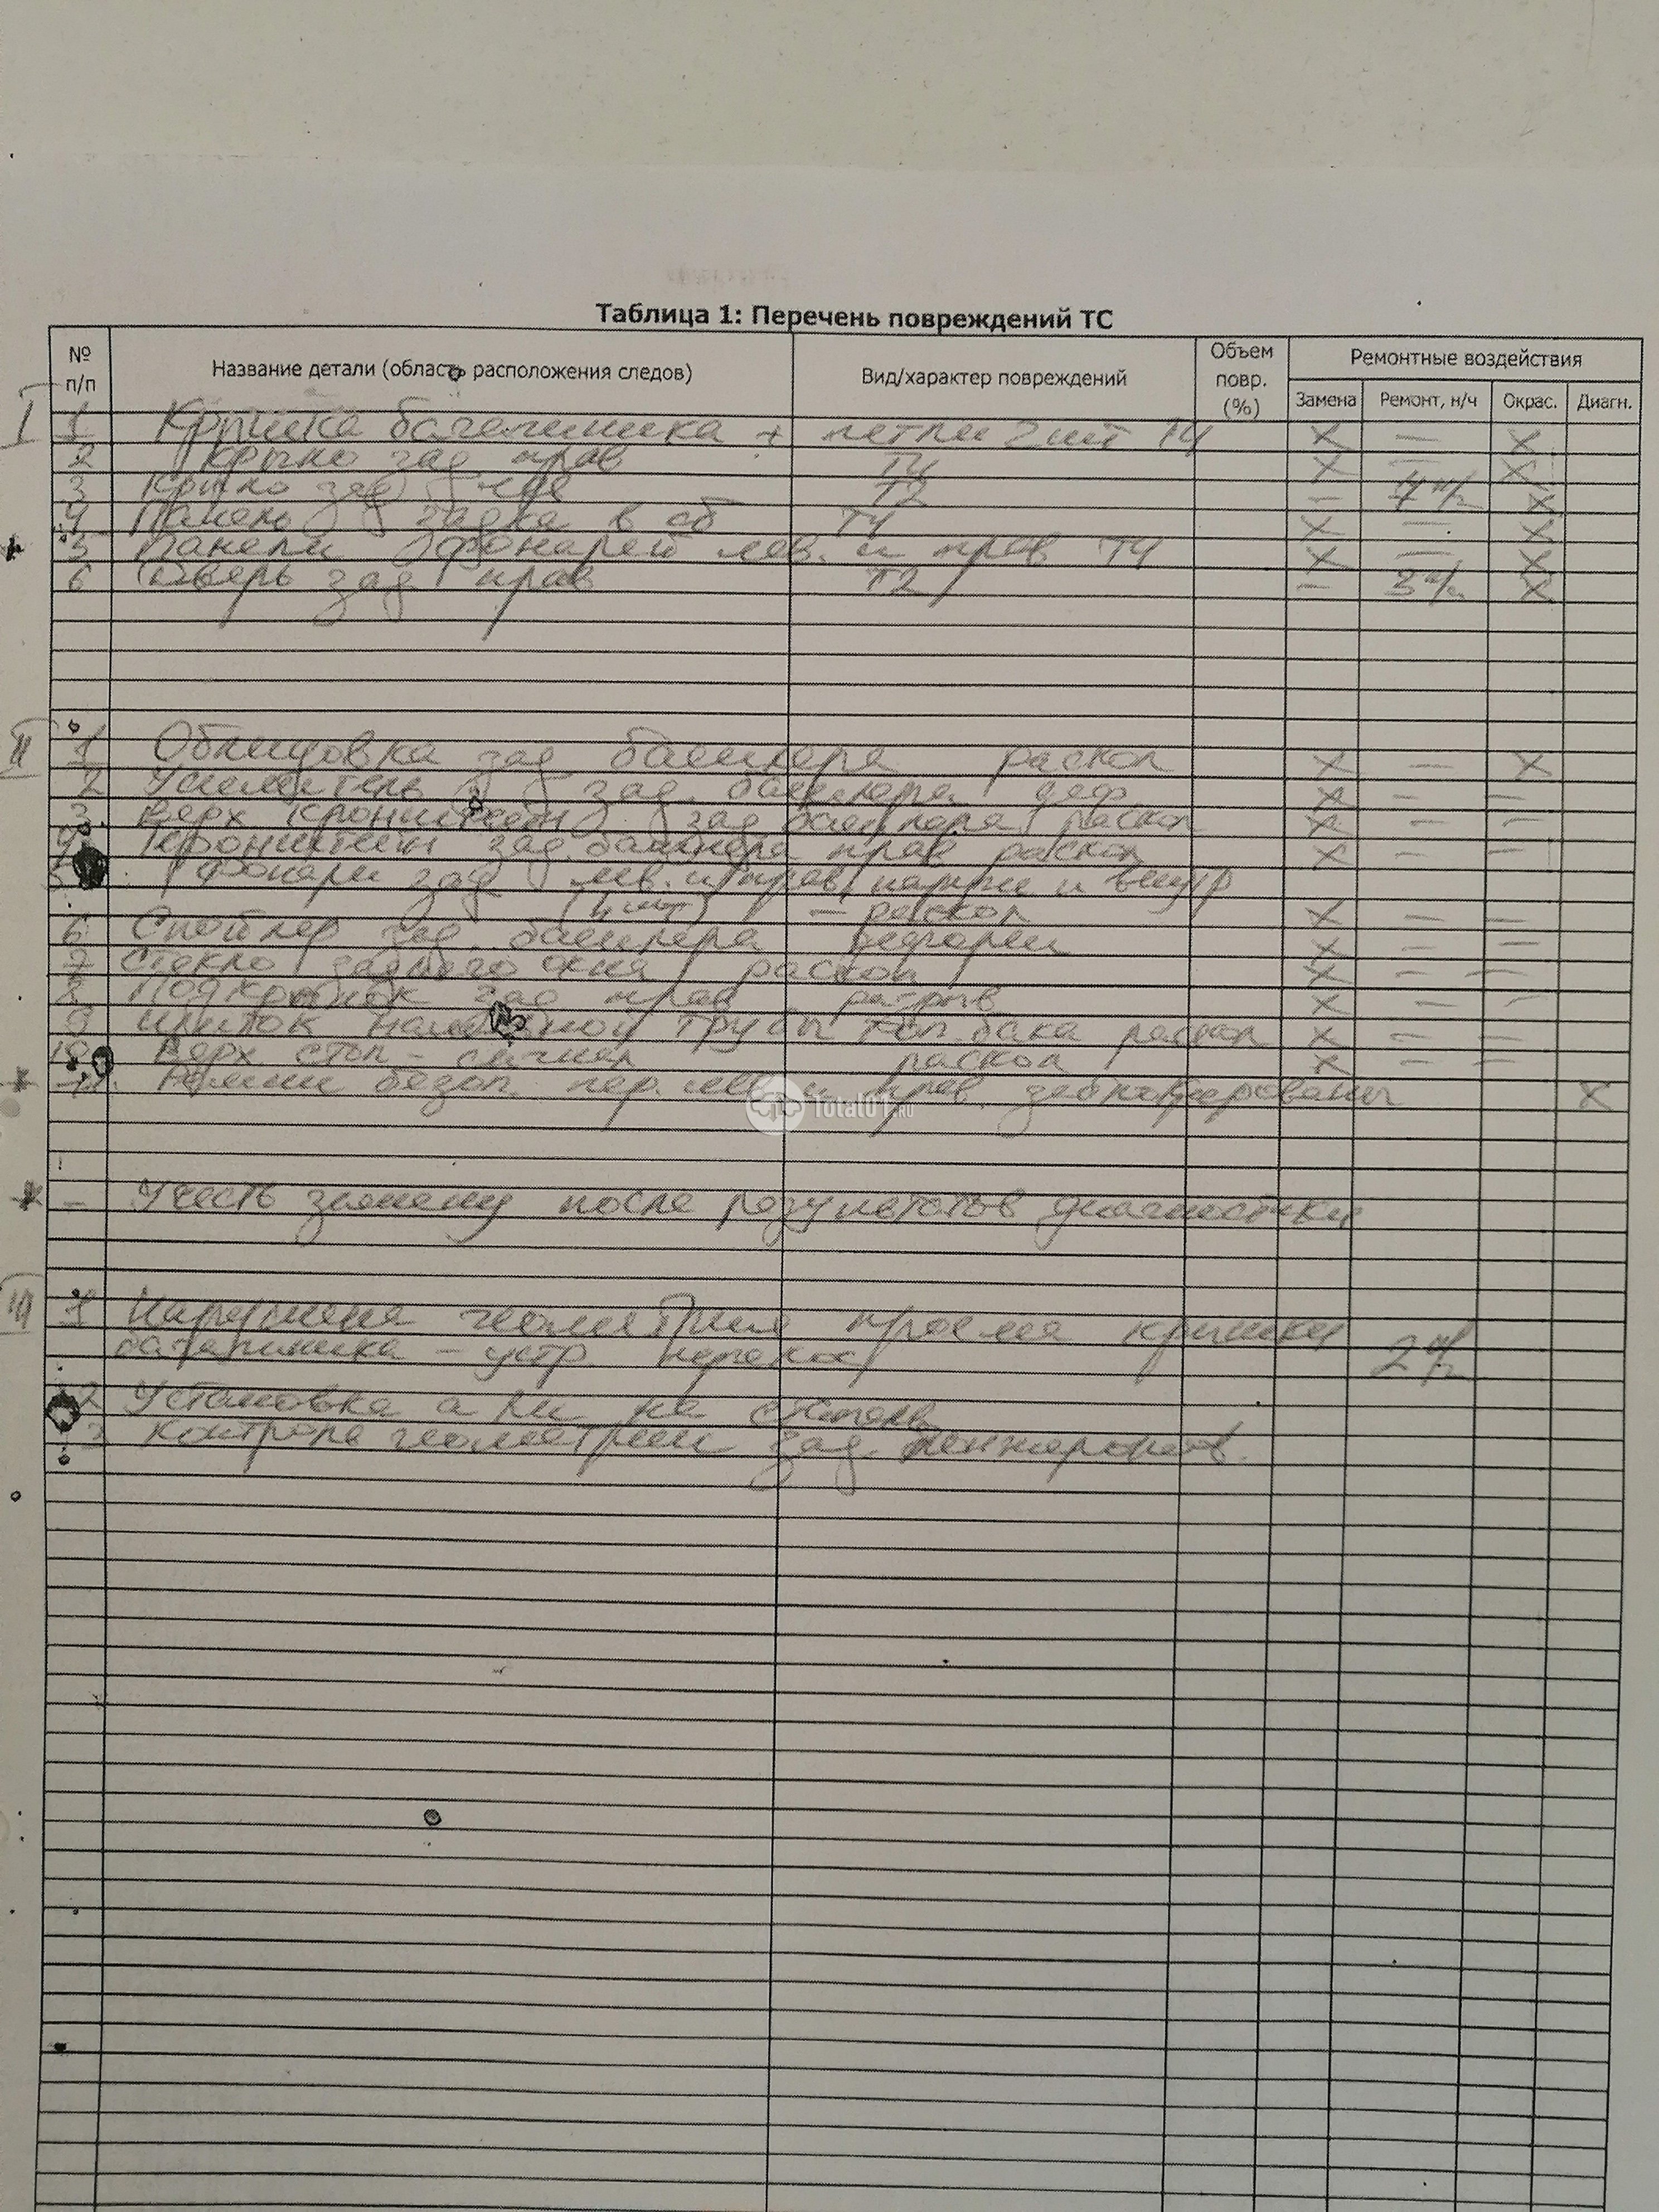 Таблица 1: Перечень повреждений ТС
№ п/п Название детали (область расположения следов) Вид/характер повреждений Объем повр. (%) Ремонтные воздействия
Замена Ремонт, н/ч Окрас. Диагн.
I 1 Крышка багажника + петли 2 шт Т4 X — X
2 Крыло зад прав Т4 X — X
3 Крыло зад лев Т2 — 4 н/ч X
4 Панель задка в сб Т4 X — X
5 Панели фонарей лев. и прав Т4 X — X
6 Дверь зад прав Т2 — 3 н/ч X
II 1 Облицовка зад бампера раскол X — X
2 Усилитель зад. бампера деф X — —
3 Верх кронштейн зад бампера раскол X — —
4 Кронштейн зад. бампера прав раскол X — —
5 Фонари зад лев. и прав наружн и внутр
(4 шт) — раскол X — —
6 Спойлер зад. бампера деформ X — —
7 Стекло заднего окна раскол X — —
8 Подкрылок зад прав разрыв X — —
9 Щиток наливной трубы топ. бака раскол X — —
10 Верх стоп-сигнал раскол X — —
11. Ремни безоп. пер. лев и прав. заблокированы X
Total01.RU
— Учесть замену после результатов диагностики
III 1 Нарушена геометрия проема крышки
багажника — устр. перекос 2 н/ч
2 Установка а/м на стапель
3 Контроль геометрии зад. лонжеронов.